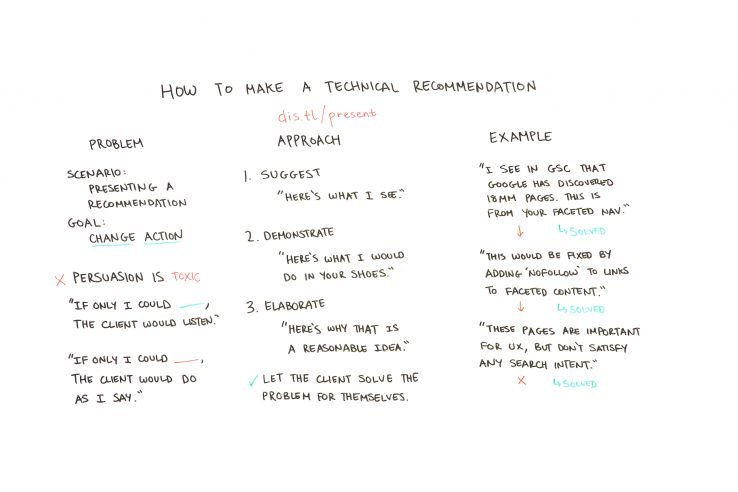 HOW TO MAKE A TECHNICAL RECOMMENDATION
dis.tl/present
PROBLEM
SCENARIO:
PRESENTING A
RECOMMENDATION
GOAL:
CHANGE ACTION
X PERSUASION IS TOXIC
"IF ONLY I COULD ____,
THE CLIENT WOULD LISTEN."
"IF ONLY I COULD ____,
THE CLIENT WOULD DO
AS I SAY."
APPROACH
1. SUGGEST
"HERE'S WHAT I SEE."
2. DEMONSTRATE
"HERE'S WHAT I WOULD
DO IN YOUR SHOES."
3. ELABORATE
"HERE'S WHY THAT IS
A REASONABLE IDEA."
✓ LET THE CLIENT SOLVE THE
PROBLEM FOR THEMSELVES.
EXAMPLE
"I SEE IN GSC THAT
GOOGLE HAS DISCOVERED
18MM PAGES. THIS IS
FROM YOUR FACETED NAV."
↓ ↳ SOLVED
"THIS WOULD BE FIXED BY
ADDING 'NOFOLLOW' TO LINKS
TO FACETED CONTENT."
↓ ↳ SOLVED
"THESE PAGES ARE IMPORTANT
FOR UX, BUT DON'T SATISFY
ANY SEARCH INTENT."
X ↳ SOLVED